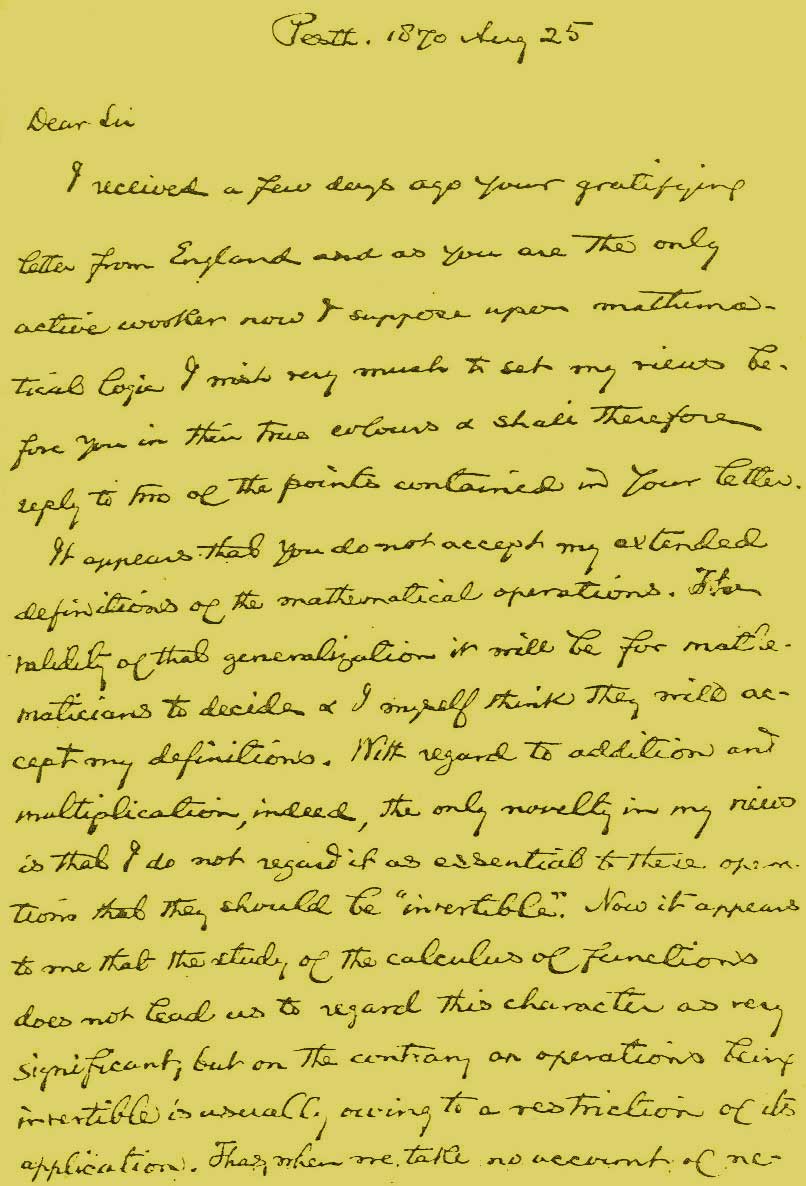 Pesth. 1870 Aug 25
Dear Sir
I received a few days ago your gratifying
letter from England and as you are the only
active worker now I suppose upon mathema-
tical logic I wish very much to set my views be-
fore you in their true colours & shall therefore
reply to two of the points contained in your letter.
It appears that you do not accept my extended
definitions of the mathematical operations. The
validity of that generalization it will be for mathe-
maticians to decide & I myself think they will ac-
cept my definitions. With regard to addition and
multiplication, indeed, the only novelty in my view
is that I do not regard it as essential to these opera-
tions that they should be "invertible". Now it appears
to me that the study of the calculus of functions
does not lead us to regard this character as very
significant, but on the contrary an operations being
invertible is usually owing to a restriction of its
application. Thus, when we take no account of ne-